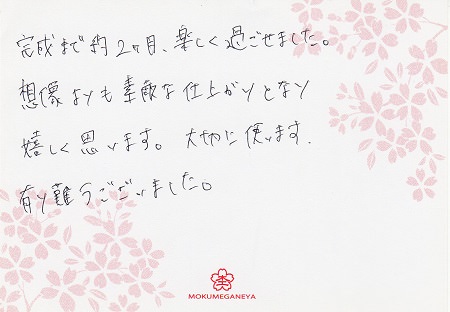 完成まで約2ヶ月、楽しく過ごせました。
想像よりも素敵な仕上がりとなり
嬉しく思います。大切に使います.
有り難うございました。
MOKUMEGANEYA